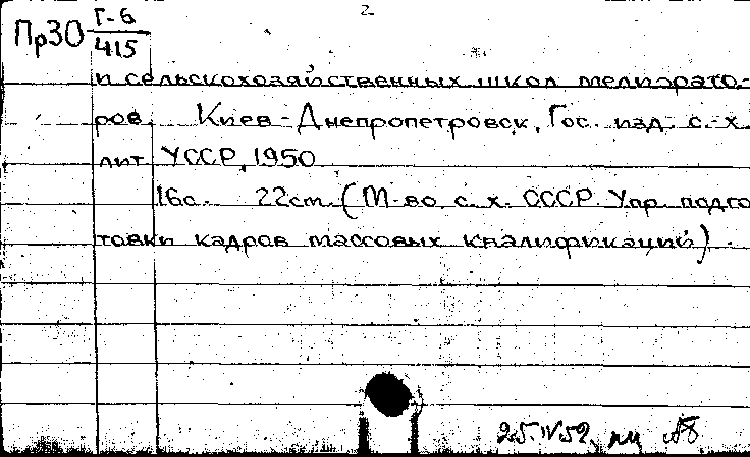 2
ПрЗО Г-6
415
и сельскохозяйственных школ мелиорато-
ров. Киев-Днепропетровск, Гос. изд. с.-х.
лит. УССР, 1950.
16с. 22см. (М-во с. х. СССР. Упр. подго
товки кадров массовых квалификаций).
25.IV.52.